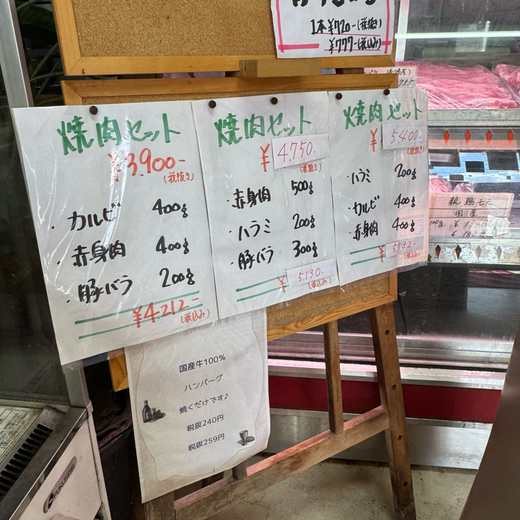 1本¥720-(税抜)
¥777-(税込み)
焼肉セット
¥3,900-
(税抜き)
・カルビ 400g
・赤身肉 400g
・豚バラ 200g
¥4212-
(税込み)
焼肉セット
¥4,750.
(税抜き)
・赤身肉 500g
・ハラミ 200g
・豚バラ 300g
¥5,130-
(税込み)
焼肉セット
¥5,400-
(税抜き)
・ハラミ 200g
・カルビ 400g
・赤身肉 400g
¥5,892-
(税込み)
国産牛100%
ハンバーグ
焼くだけです♪
税抜240円
税抜259円
国産